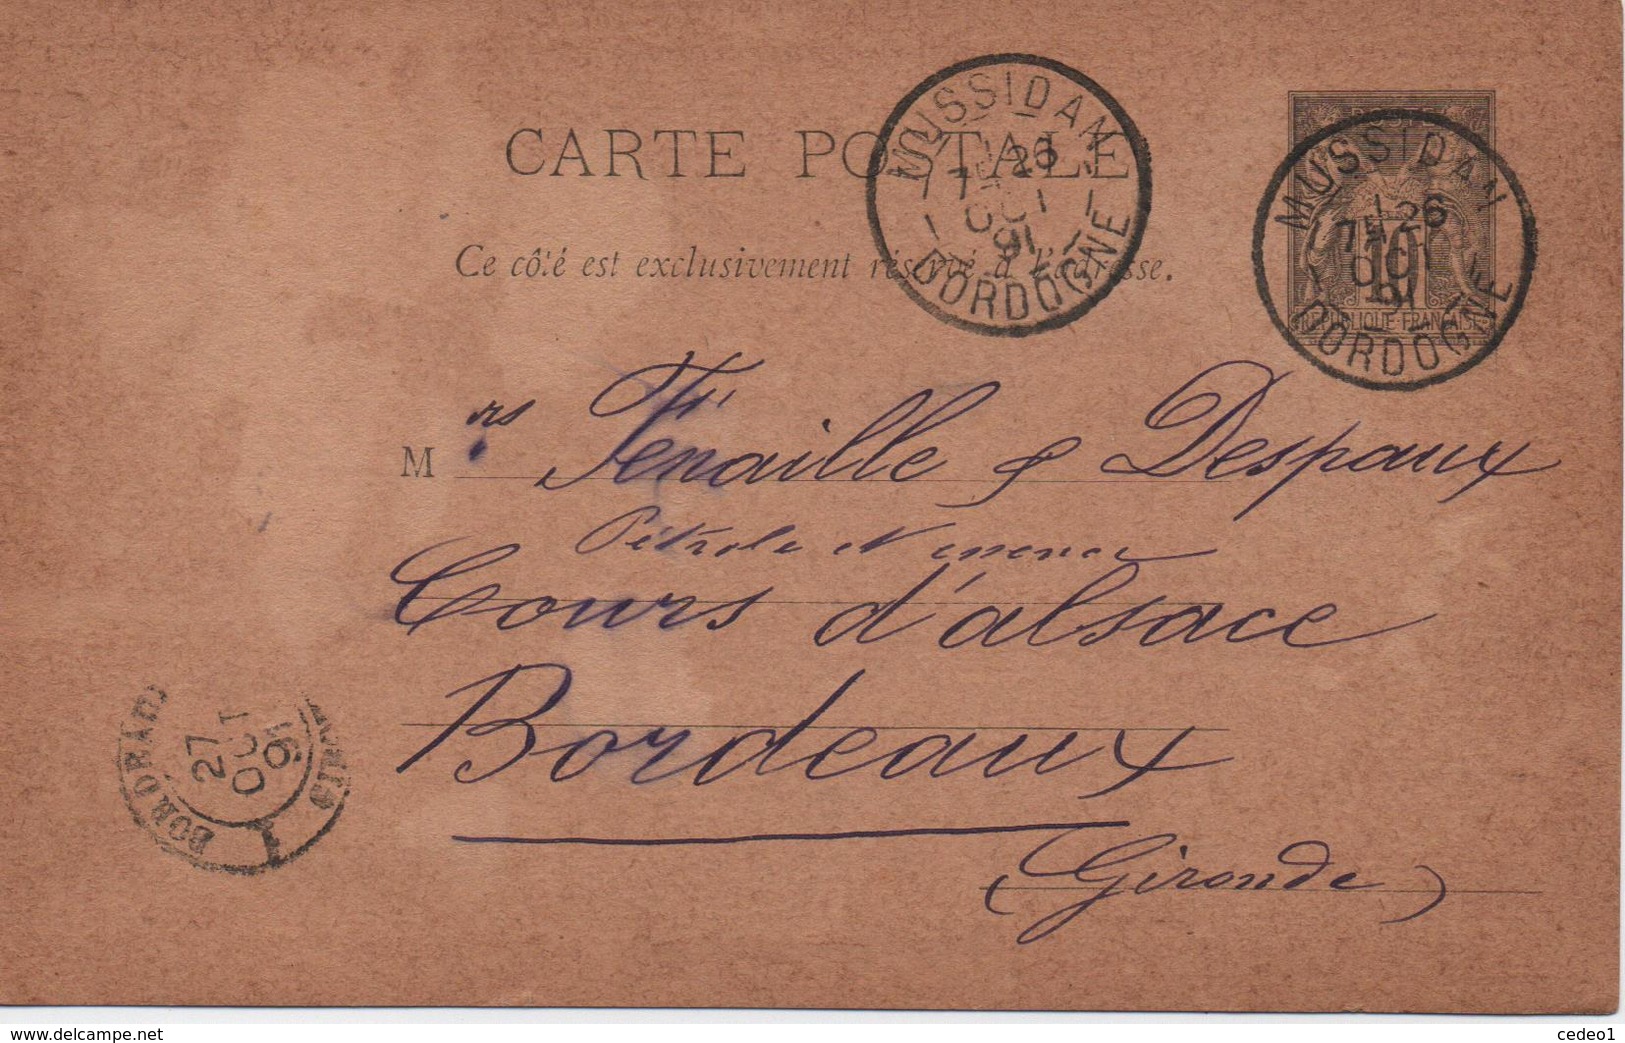 CARTE POSTALE
Ce côté est exclusivement réservé à l'adresse.
MUSSIDAN
1 26
7E
OCT
91
DORDOGNE
MUSSIDAN
1 26
7E
OCT
91
DORDOGNE
10
REPUBLIQUE FRANÇAISE
M rs Fenaille & Despaux
Pétrole
Cours d'alsace
Bordeaux
(Gironde)
BORDEAUX
27
OCT
91
GIRONDE
www.delcampe.net
cedeo1